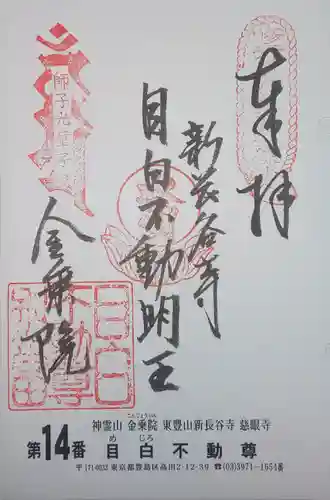 奉拝
新長谷寺
目白不動明王
師子光童子
金乗院
目白不動尊
神霊山 金乗院 東豊山新長谷寺 慈眼寺
こんじょういん
第14番 目白不動尊
めじろ
〒171-0033 東京都豊島区高田2-12-39 ☎(03)3971-1654番